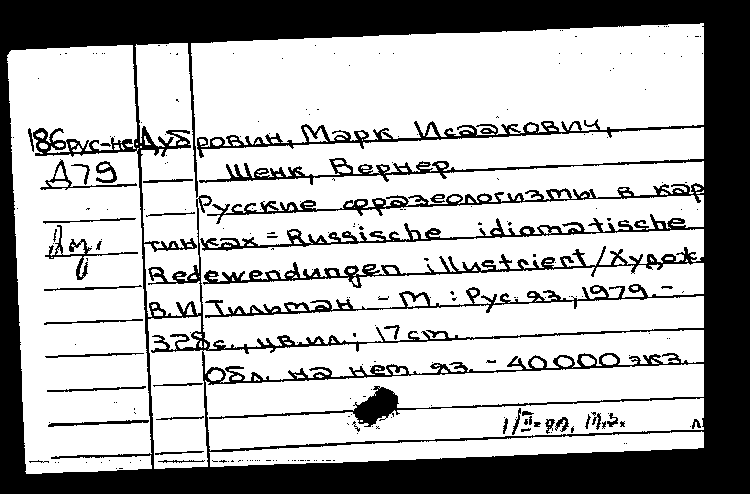 186рус-нем Дубровин, Марк Исаакович,
Д79 Шенк, Вернер.
Русские фразеологизмы в кар
тинках = Russische idiomatische
Redewendungen illustriert/Худож.
В.И.Тильман. - М.: Рус. яз., 1979. -
328с., цв.ил.; 17cm.
Обл. на нем. яз. - 40000 экз.